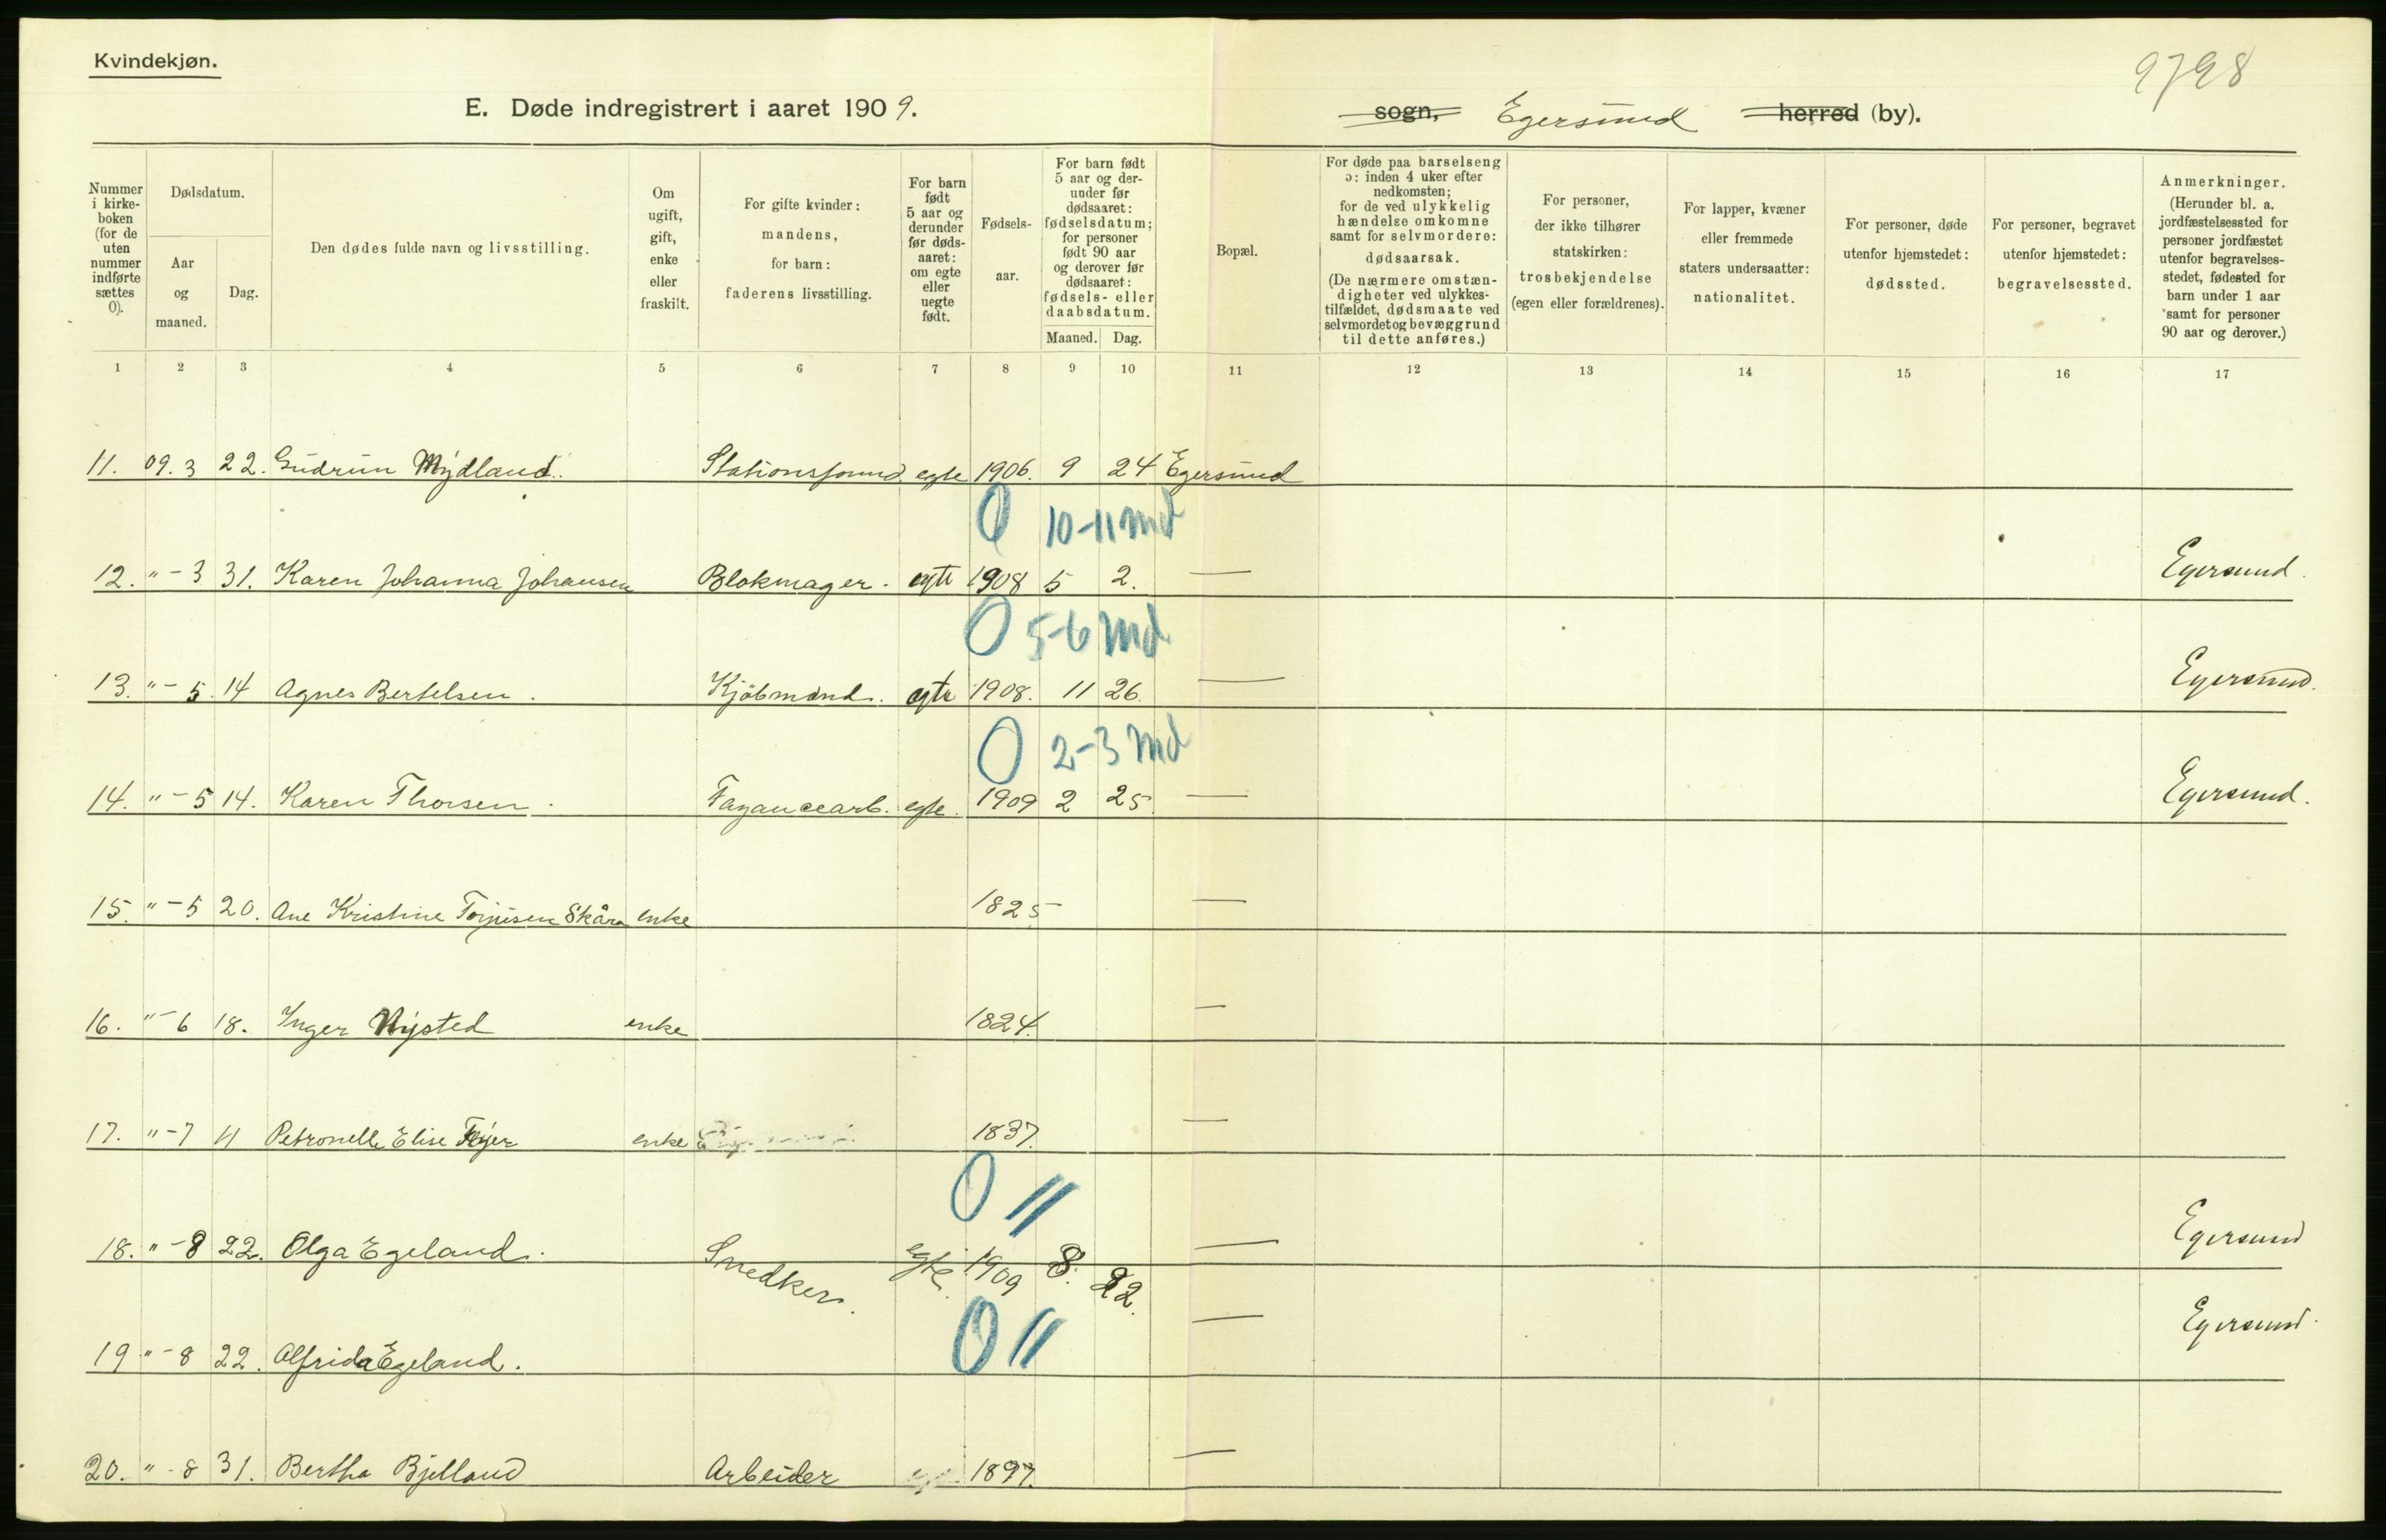 Kvindekjøn.
9798
E. Døde indregistrert i aaret 1909. sogn, Egersund herred (by).
Nummer i kirkeboken (for de uten nummer indførte sættes 0).
Dødsdatum.
Aar og maaned.
Dag.
Den dødes fulde navn og livsstilling.
Om ugift, gift, enke eller fraskilt.
For gifte kvinder: mandens, for barn: faderens livsstilling.
For barn født 5 aar og derunder før dødsaaret: om egte eller uegte født.
Fødselsaar.
For barn født 5 aar og derunder før dødsaaret: fødselsdatum; for personer født 90 aar og derover før dødsaaret: fødsels- eller daabsdatum.
Maaned. Dag.
Bopæl.
For døde paa barselseng ɔ: inden 4 uker efter nedkomsten; for de ved ulykkelig hændelse omkomne samt for selvmordere: dødsaarsak. (De nærmere omstændigheter ved ulykkestilfældet, dødsmaate ved selvmordet og bevæggrund til dette anføres.)
For personer, der ikke tilhører statskirken: trosbekjendelse (egen eller forældrenes).
For lapper, kvæner eller fremmede staters undersaatter: nationalitet.
For personer, døde utenfor hjemstedet: dødssted.
For personer, begravet utenfor hjemstedet: begravelsessted.
Anmerkninger. (Herunder bl. a. jordfæstelsessted for personer jordfæstet utenfor begravelsesstedet, fødested for barn under 1 aar samt for personer 90 aar og derover.)
1 2 3 4 5 6 7 8 9 10 11 12 13 14 15 16 17
11. 09. 3 22. Gudrun Mydland. egte 1906. 9 24 Egersund
0 10-11 md
12. " - 3 31. Karen Johanna Johansen Blokmager. egte 1908 5 2. — Egersund.
0 5-6 md
13. " - 5. 14 Agnes Bertelsen. Kjöbmand. egte 1908. 11 26. — Egersund.
0 2-3 md
14. " - 5 14. Karen Thorsen. Fayancearb. egte. 1909 2 25. — Egersund.
15. " - 5 20. Ane Kristine Torjusen Skåra enke 1825 —
16. " - 6 18. Inger Nysted enke 1824. —
17. " - 7 11 Petronelle Elise enke 1837. —
0 11
18. " - 8 22. Olga Egeland. Snedker. egte. 1909 8. 22. — Egersund
0 11
19 " - 8 22. Alfrida Egeland. — Egersund.
20. " - 8 31. Bertha Bjelland Arbeider 1897. —